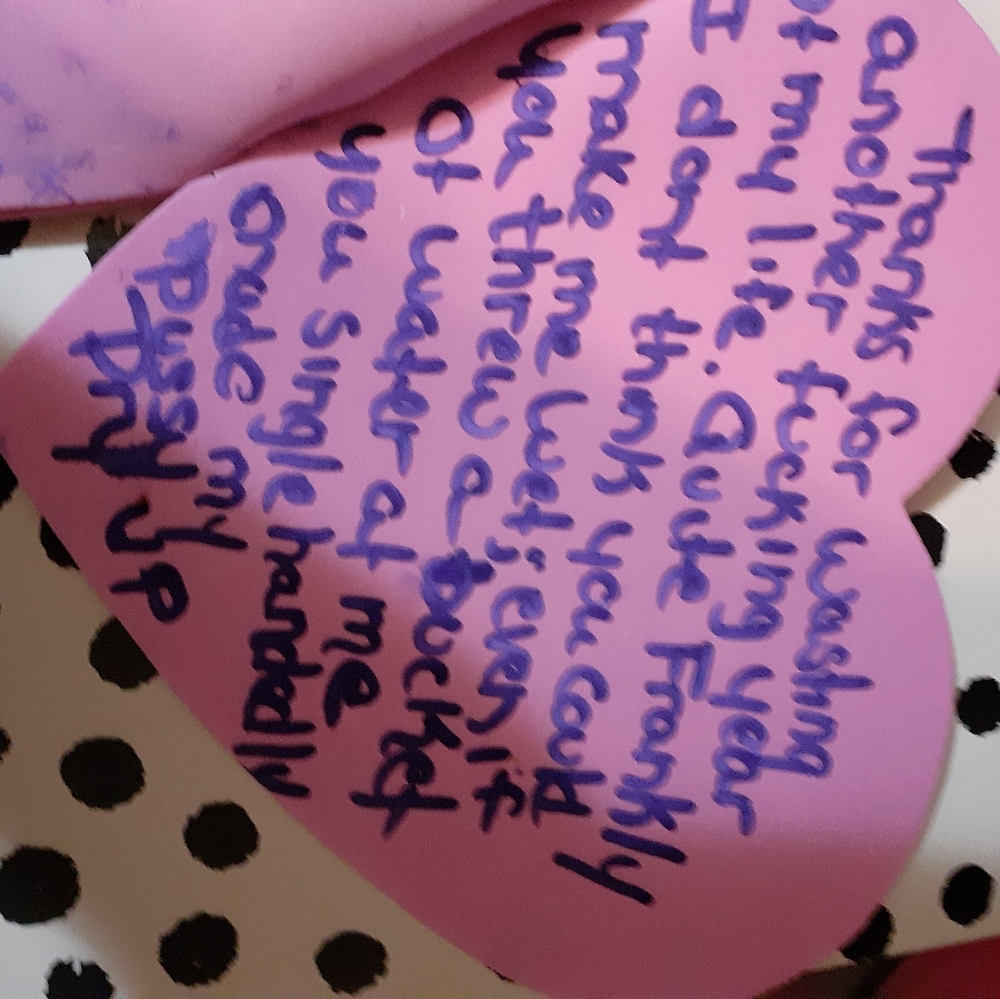 Thanks for washing
another fucking year
of my life. Quite Frankly
I dont think you could
make me wet; even if
you threw a bucket
of water at me
you single handedly
made my
pussy
Dry up